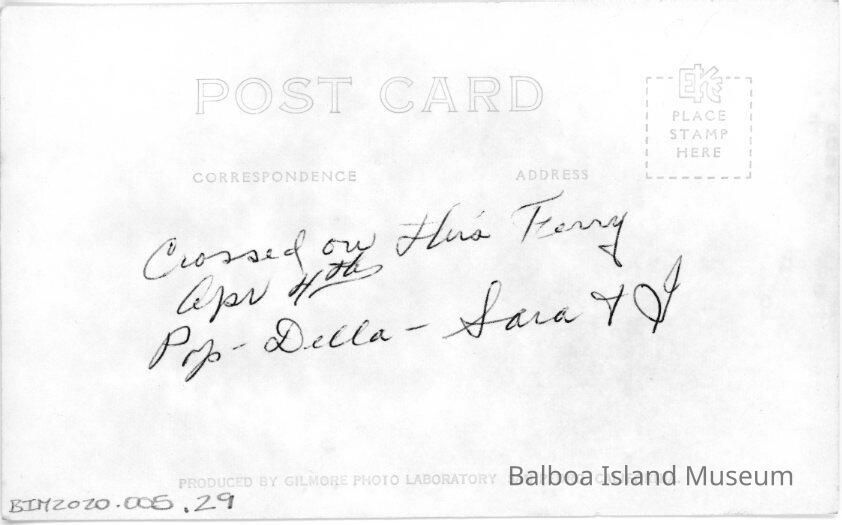 POST CARD
EKC
PLACE
STAMP
HERE
CORRESPONDENCE ADDRESS
Crossed on this Ferry
Apr 4th
Pop - Della - Sara & I
PRODUCED BY GILMORE PHOTO LABORATORY
Balboa Island Museum
BIM2020.005.29